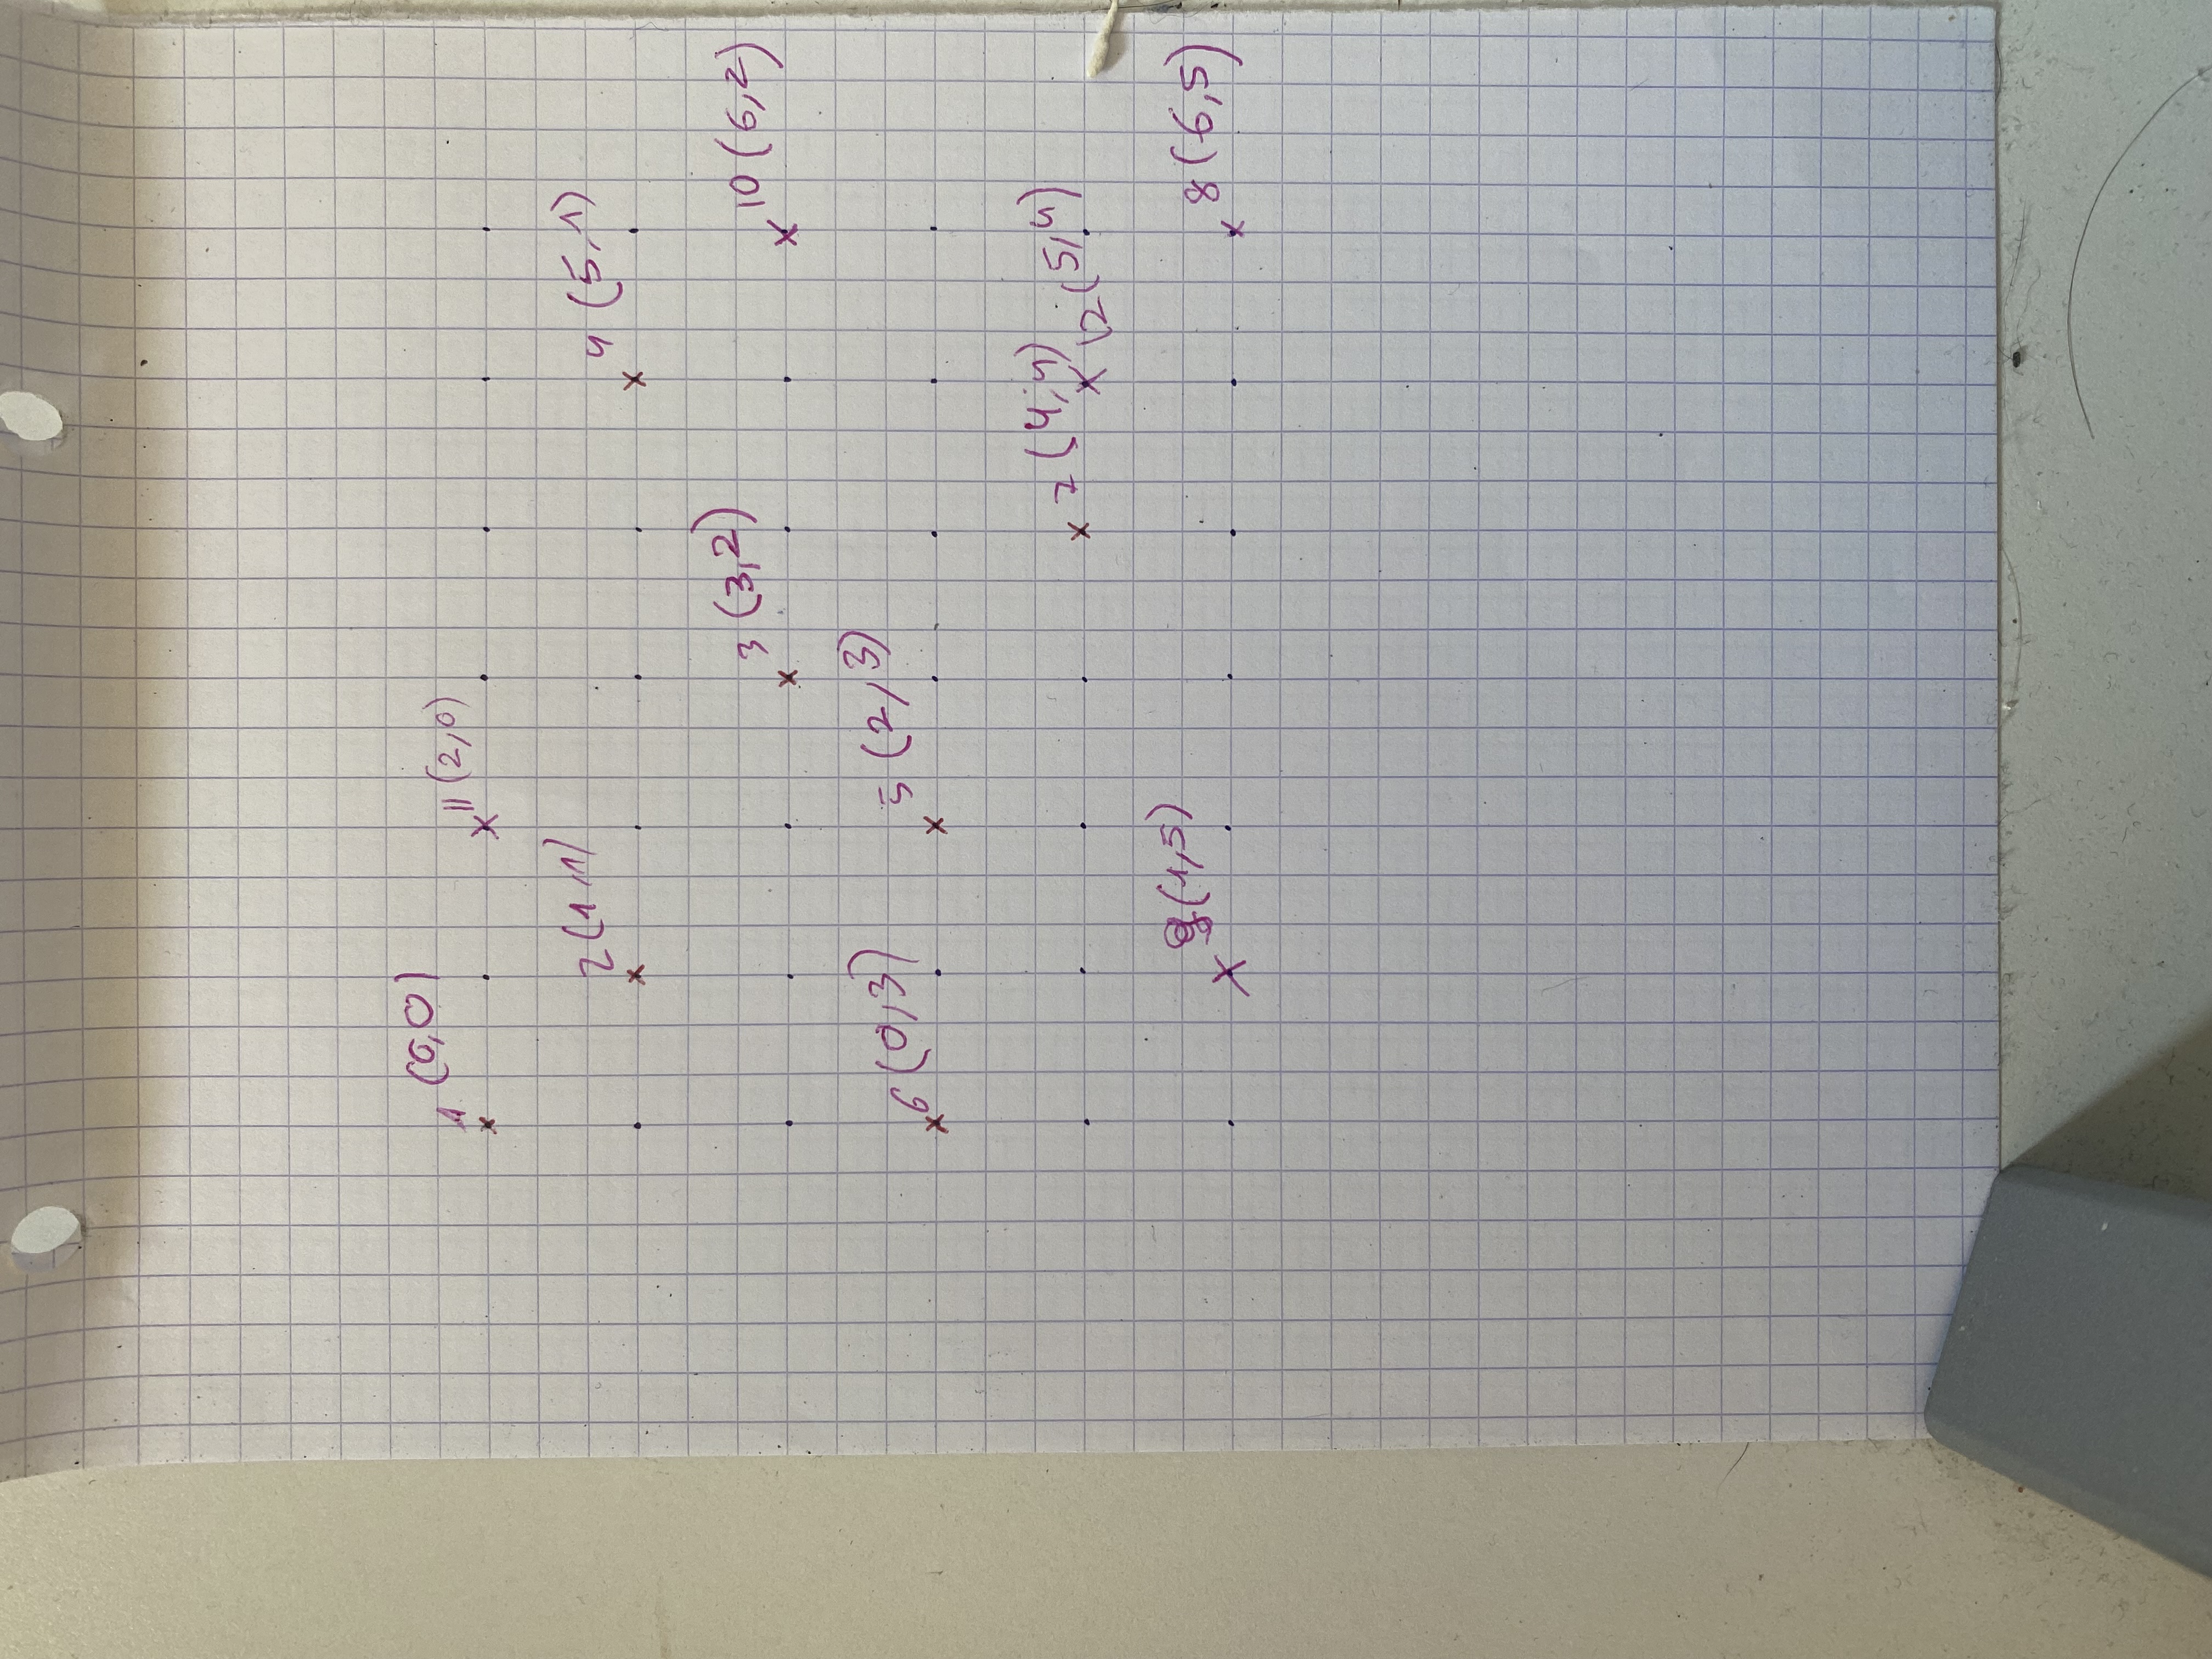 1 (0,0)
11 (2,0)
2 (1,1)
4 (5,1)
3 (3,2)
10 (6,2)
6 (0,3)
5 (2,3)
7 (4,4)
12 (5,4)
9 (1,5)
8 (6,5)